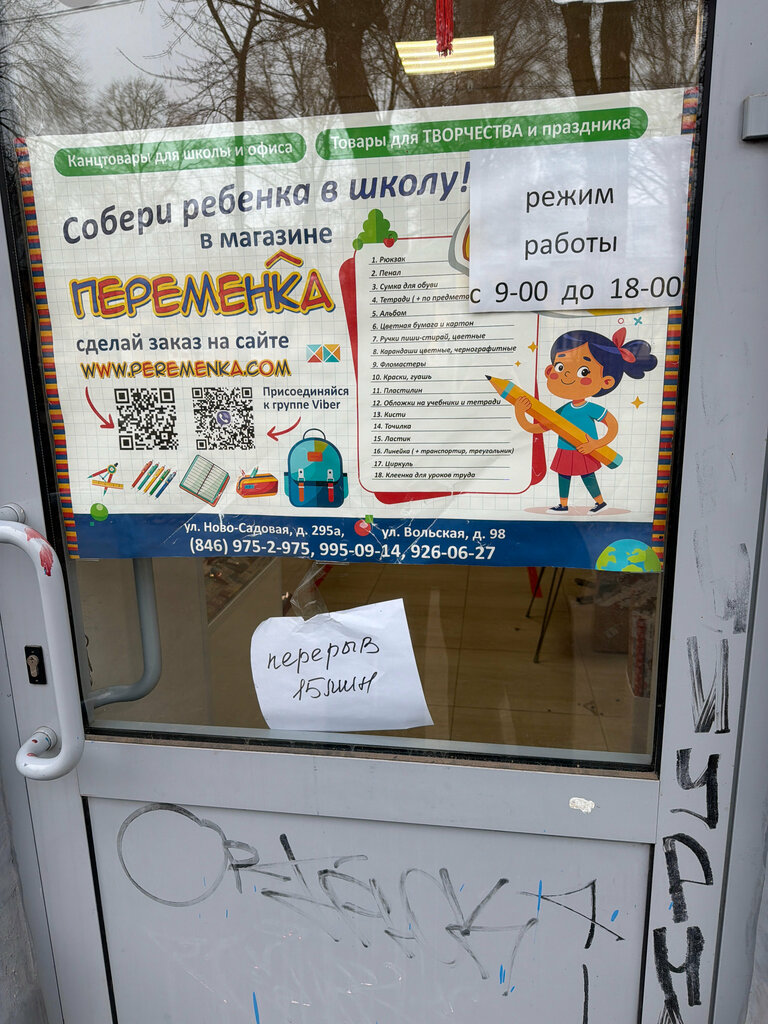 Канцтовары для школы и офиса
Товары для ТВОРЧЕСТВА и праздника
Собери ребенка в школу!
в магазине
ПЕРЕМЕНКА
сделай заказ на сайте
WWW.PEREMENKA.COM
Присоединяйся
к группе Viber
режим
работы
с 9-00 до 18-00
1. Рюкзак
2. Пенал
3. Сумка для обуви
4. Тетради (+ по предмета
5. Альбом
6. Цветная бумага и картон
7. Ручки пиши-стирай, цветные
8. Карандаши цветные, чернографитные
9. Фломастеры
10. Краски, гуашь
11. Пластилин
12. Обложки на учебники и тетради
13. Кисти
14. Точилка
15. Ластик
16. Линейка (+ транспортир, треугольник)
17. Циркуль
18. Клеенка для уроков труда
ул. Ново-Садовая, д. 295а, ул. Вольская, д. 98
(846) 975-2-975, 995-09-14, 926-06-27
перерыв
15мин